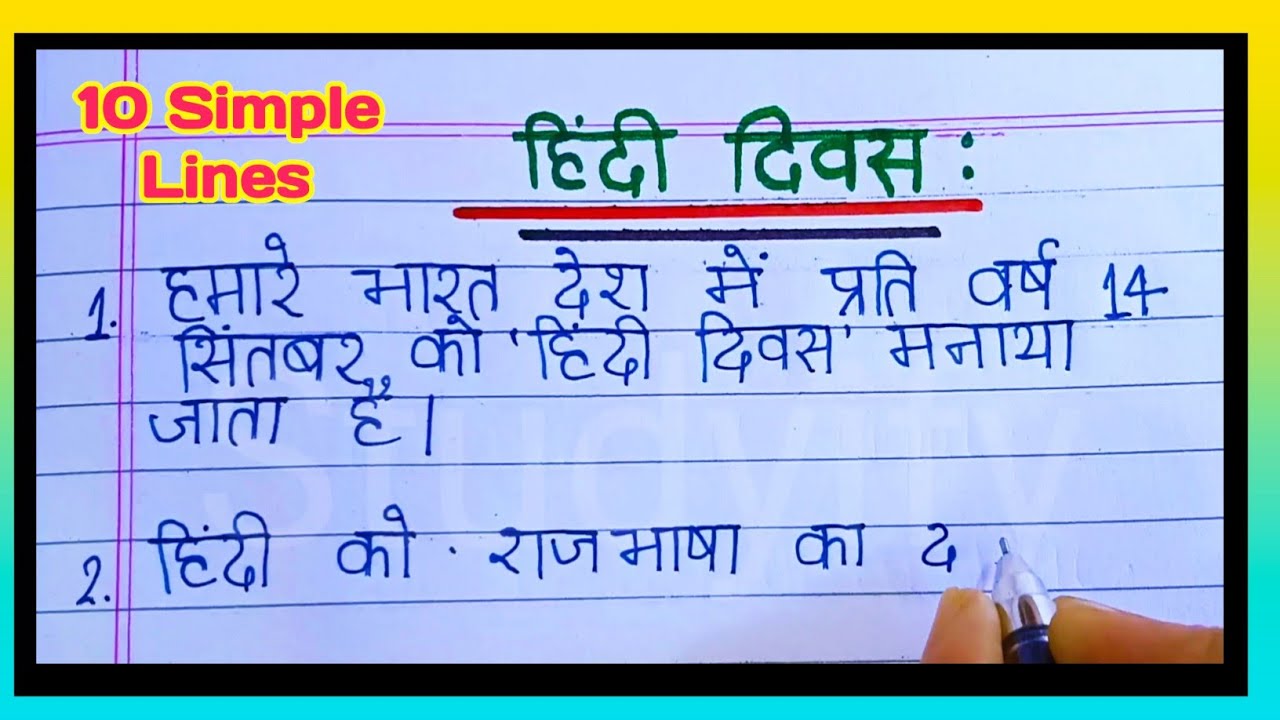 10 Simple
Lines
हिंदी दिवस :
1. हमारे भारत देश में प्रति वर्ष 14
सिंतबर को 'हिंदी दिवस' मनाया
जाता है।
2. हिंदी को राजभाषा का द
Studyity